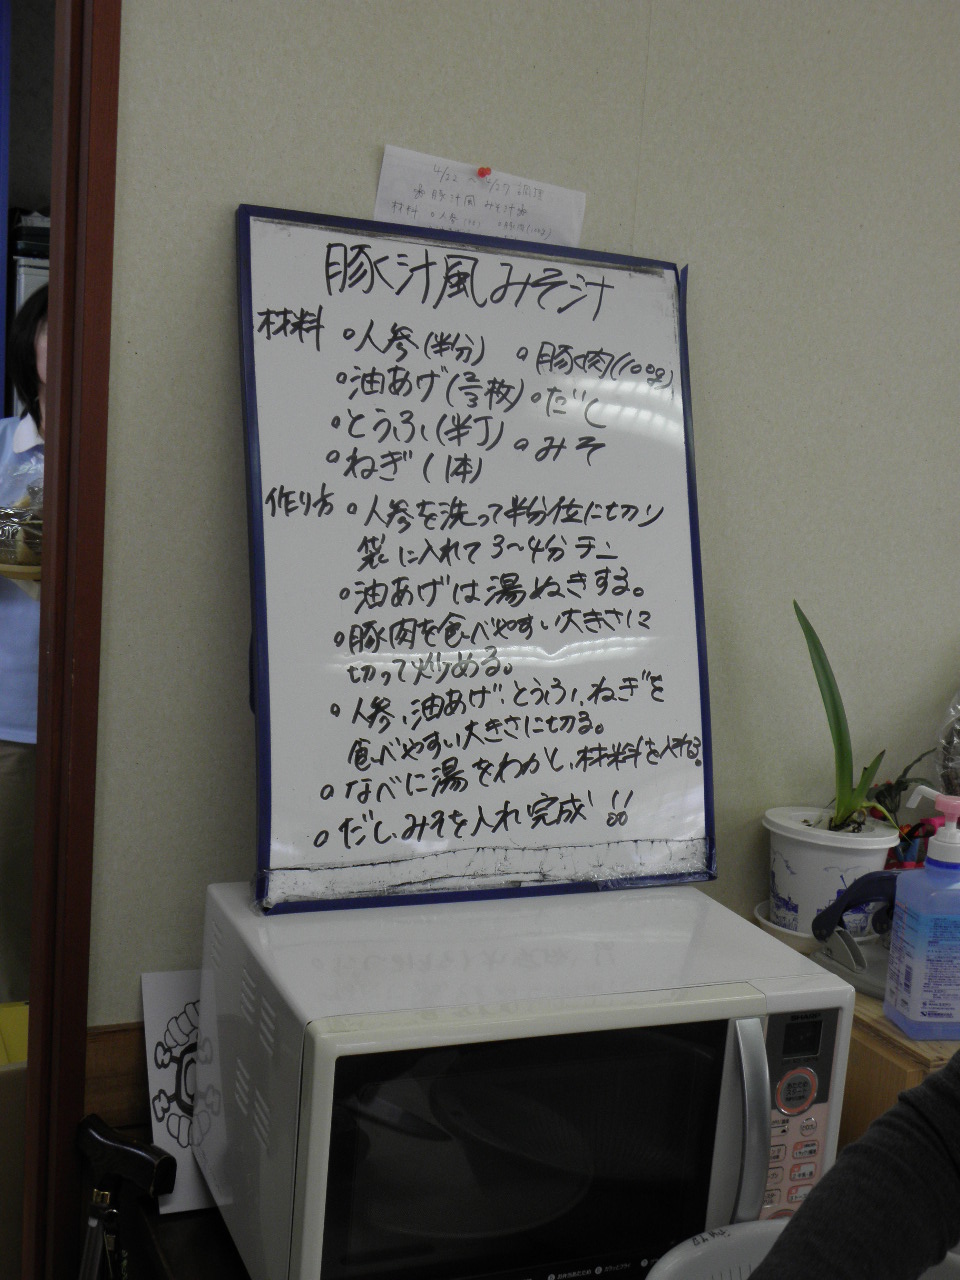 4/22 〜 4/27 調理
豚汁風 みそ汁
材料 ○人参 ○豚肉(100g)
豚汁風みそ汁
材料 ○人参(半分) ○豚肉(100g)
○油あげ(2/3枚) ○だし
○とうふ(半丁) ○みそ
○ねぎ(1本)
作り方 ○人参を洗って半分位に切り
袋に入れて3〜4分チン
○油あげは湯ぬきする。
○豚肉を食べやすい大きさに
切って炒める。
○人参、油あげ、とうふ、ねぎを
食べやすい大きさに切る。
○なべに湯をわかし、材料を入れる。
○だし、みそを入れ完成!!
SHARP